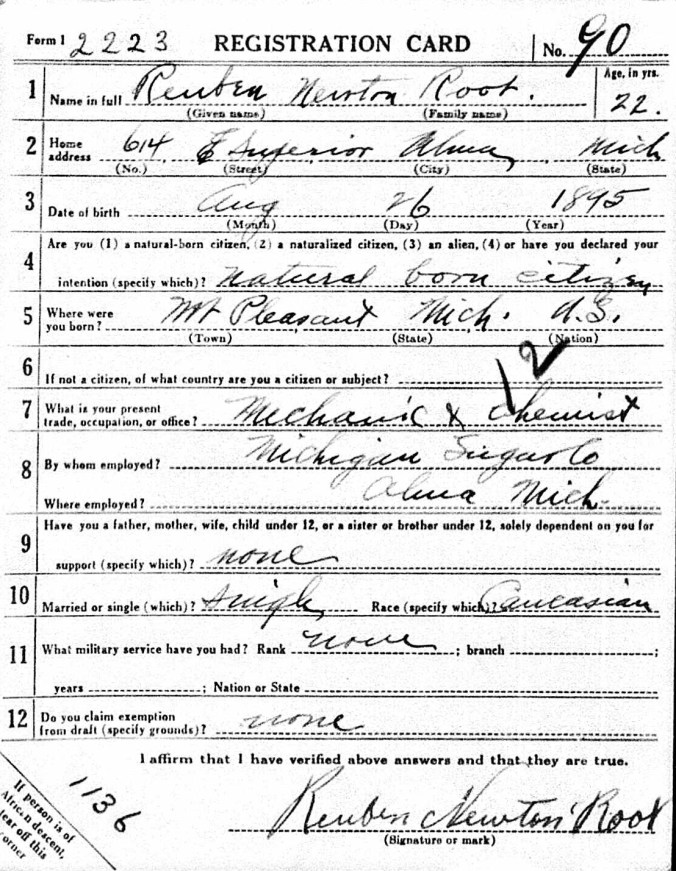 Form 1 2223 REGISTRATION CARD No. 90
1 Name in full Reuben Newton Root. Age, in yrs. 22.
(Given name) (Family name)
2 Home address 614 E Superior Alma, Mich
(No.) (Street) (City) (State)
3 Date of birth Aug 26 1895
(Month) (Day) (Year)
4 Are you (1) a natural-born citizen, (2) a naturalized citizen, (3) an alien, (4) or have you declared your
intention (specify which)? natural born citizen
5 Where were you born? Mt Pleasant Mich. U.S.
(Town) (State) (Nation)
12
6 If not a citizen, of what country are you a citizen or subject?
7 What is your present trade, occupation, or office? Mechanic & chemist
8 By whom employed? Michigan Sugar Co
Where employed? Alma Mich.
9 Have you a father, mother, wife, child under 12, or a sister or brother under 12, solely dependent on you for
support (specify which)? none
10 Married or single (which)? Single Race (specify which)? Caucasian
11 What military service have you had? Rank none ; branch ;
years ; Nation or State
12 Do you claim exemption from draft (specify grounds)? none
I affirm that I have verified above answers and that they are true.
1136
Reuben Newton Root
(Signature or mark)
If person is of
African descent,
tear off this
corner